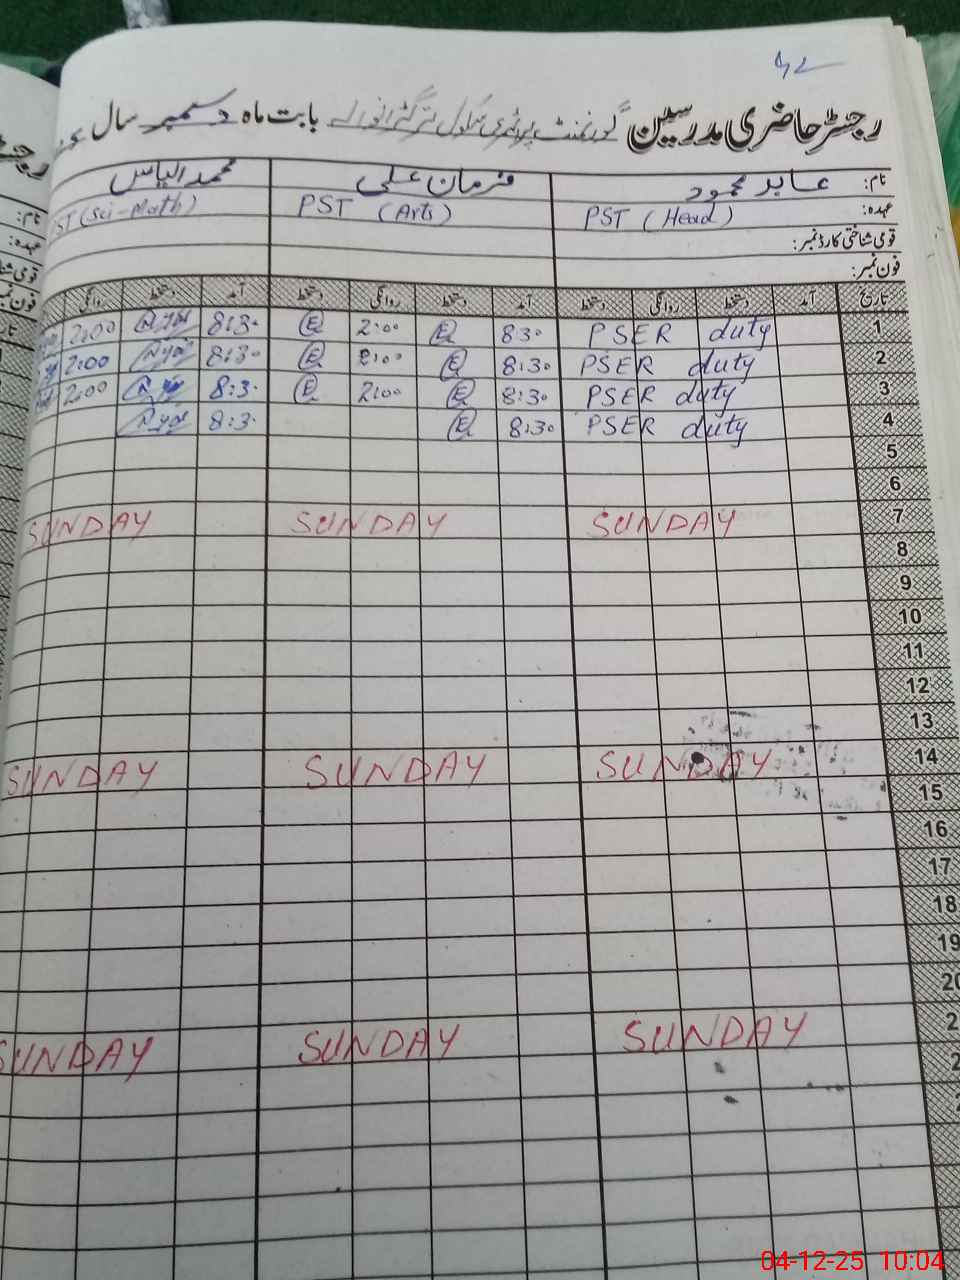 رجسٹر حاضری مدرسین گورنمنٹ پرائمری سکول بابت ماہ دسمبر سال
نام: عابد محمود فرمان علی محمد الیاس
عہدہ: PST (Head) PST (Arts) PST (Sci-Math)
قومی شناختی کارڈ نمبر:
فون نمبر:
تاریخ آمد دستخط روانگی دستخط آمد دستخط روانگی دستخط آمد دستخط روانگی
1 PSER duty 8:30 2:00 8:30 2:00
2 PSER duty 8:30 2:00 8:30 2:00
3 PSER duty 8:30 2:00 8:30 2:00
4 PSER duty 8:30 8:30
5
6
7 SUNDAY SUNDAY SUNDAY
8
9
10
11
12
13
14 SUNDAY SUNDAY SUNDAY
15
16
17
18
19
SUNDAY SUNDAY SUNDAY
04-12-25 10:04